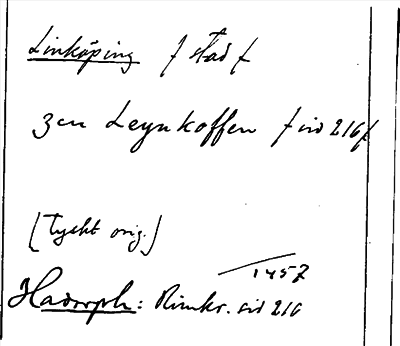 Linköping / stad /
zcu Leynkoffen / sid 216 /
[Tyskt orig.]
1457
Hadorph: Rimkr. sid 216